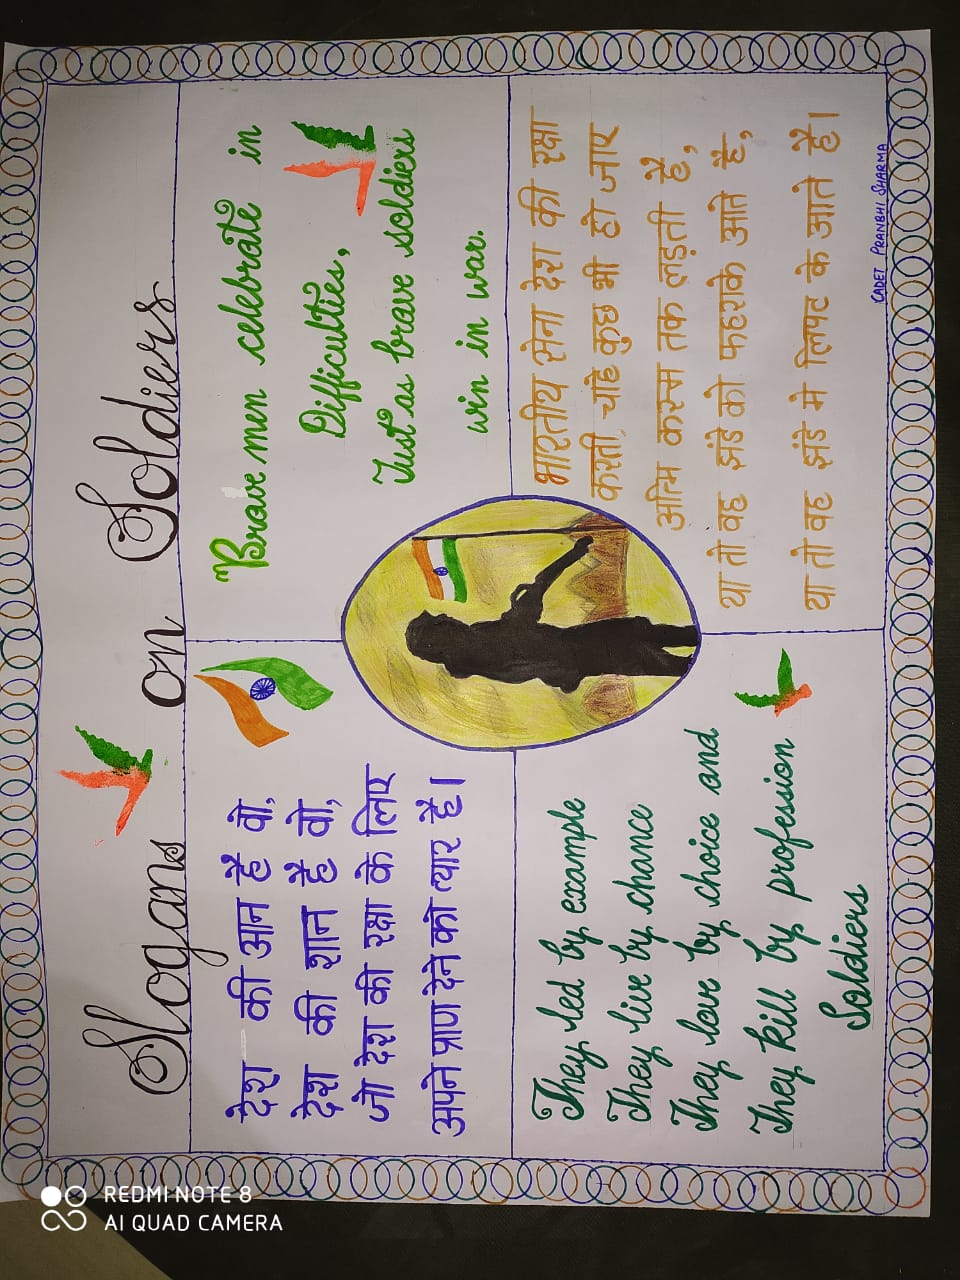 Slogans on Soldiers
देश की आन है वो,
देश की शान है वो,
जो देश की रक्षा के लिए
अपने प्राण देने को त्यार है।
Brave men celebrate in
Difficulties,
Just as brave soldiers
win in war.
They led by example
They live by chance
They love by choice and
They kill by profession
Soldiers
भारतीय सेना देश की रक्षा
करती, चाहे कुछ भी हो जाए
अन्तिम करम्स तक लड़ती है,
या तो वह झंडे को फहराके आते है,
या तो वह झंडे मे लिपट के आते है।
CADET PRANBHI SHARMA
REDMI NOTE 8
AI QUAD CAMERA